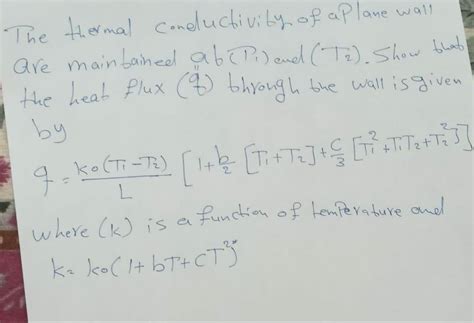 The thermal conductivity of a plane wall
are maintained at (T1) and (T2). Show that
the heat flux (q) through the wall is given
by
q = ko(T1-T2)/L [1+b/2 [T1+T2]+c/3 [T1²+T1T2+T2²]]
where (k) is a function of temperature and
k= ko(1+bT+cT²)